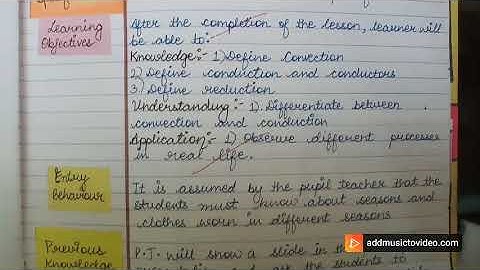 Learning
Objectives
After the completion of the lesson, learner will
be able to:-
Knowledge:- 1) Define Convection
2) Define conduction and conductors
3) Define reduction
Understanding:- 1. Differentiate between
convection and conduction
Application:- 1) Observe different processes
in real life.
Entry
Behaviour
It is assumed by the pupil teacher that the
students must know about seasons and
clothes worn in different seasons
Previous
Knowledge
P.T. will show a slide in the
the students to
addmusictovideo.com